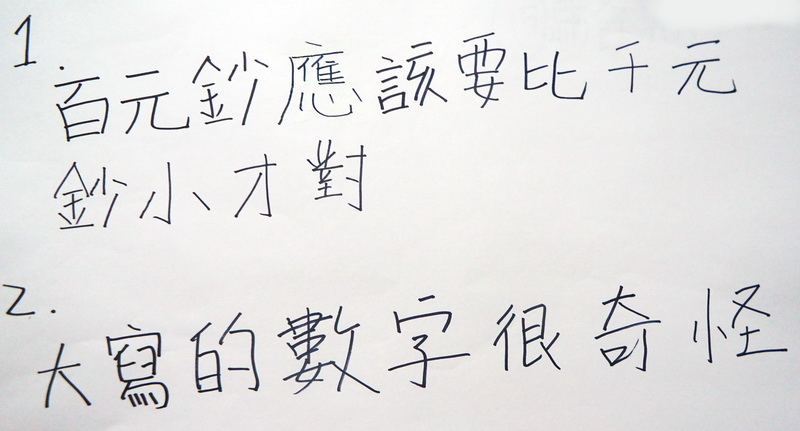 1.
百元鈔應該要比千元
鈔小才對
2.
大寫的數字很奇怪